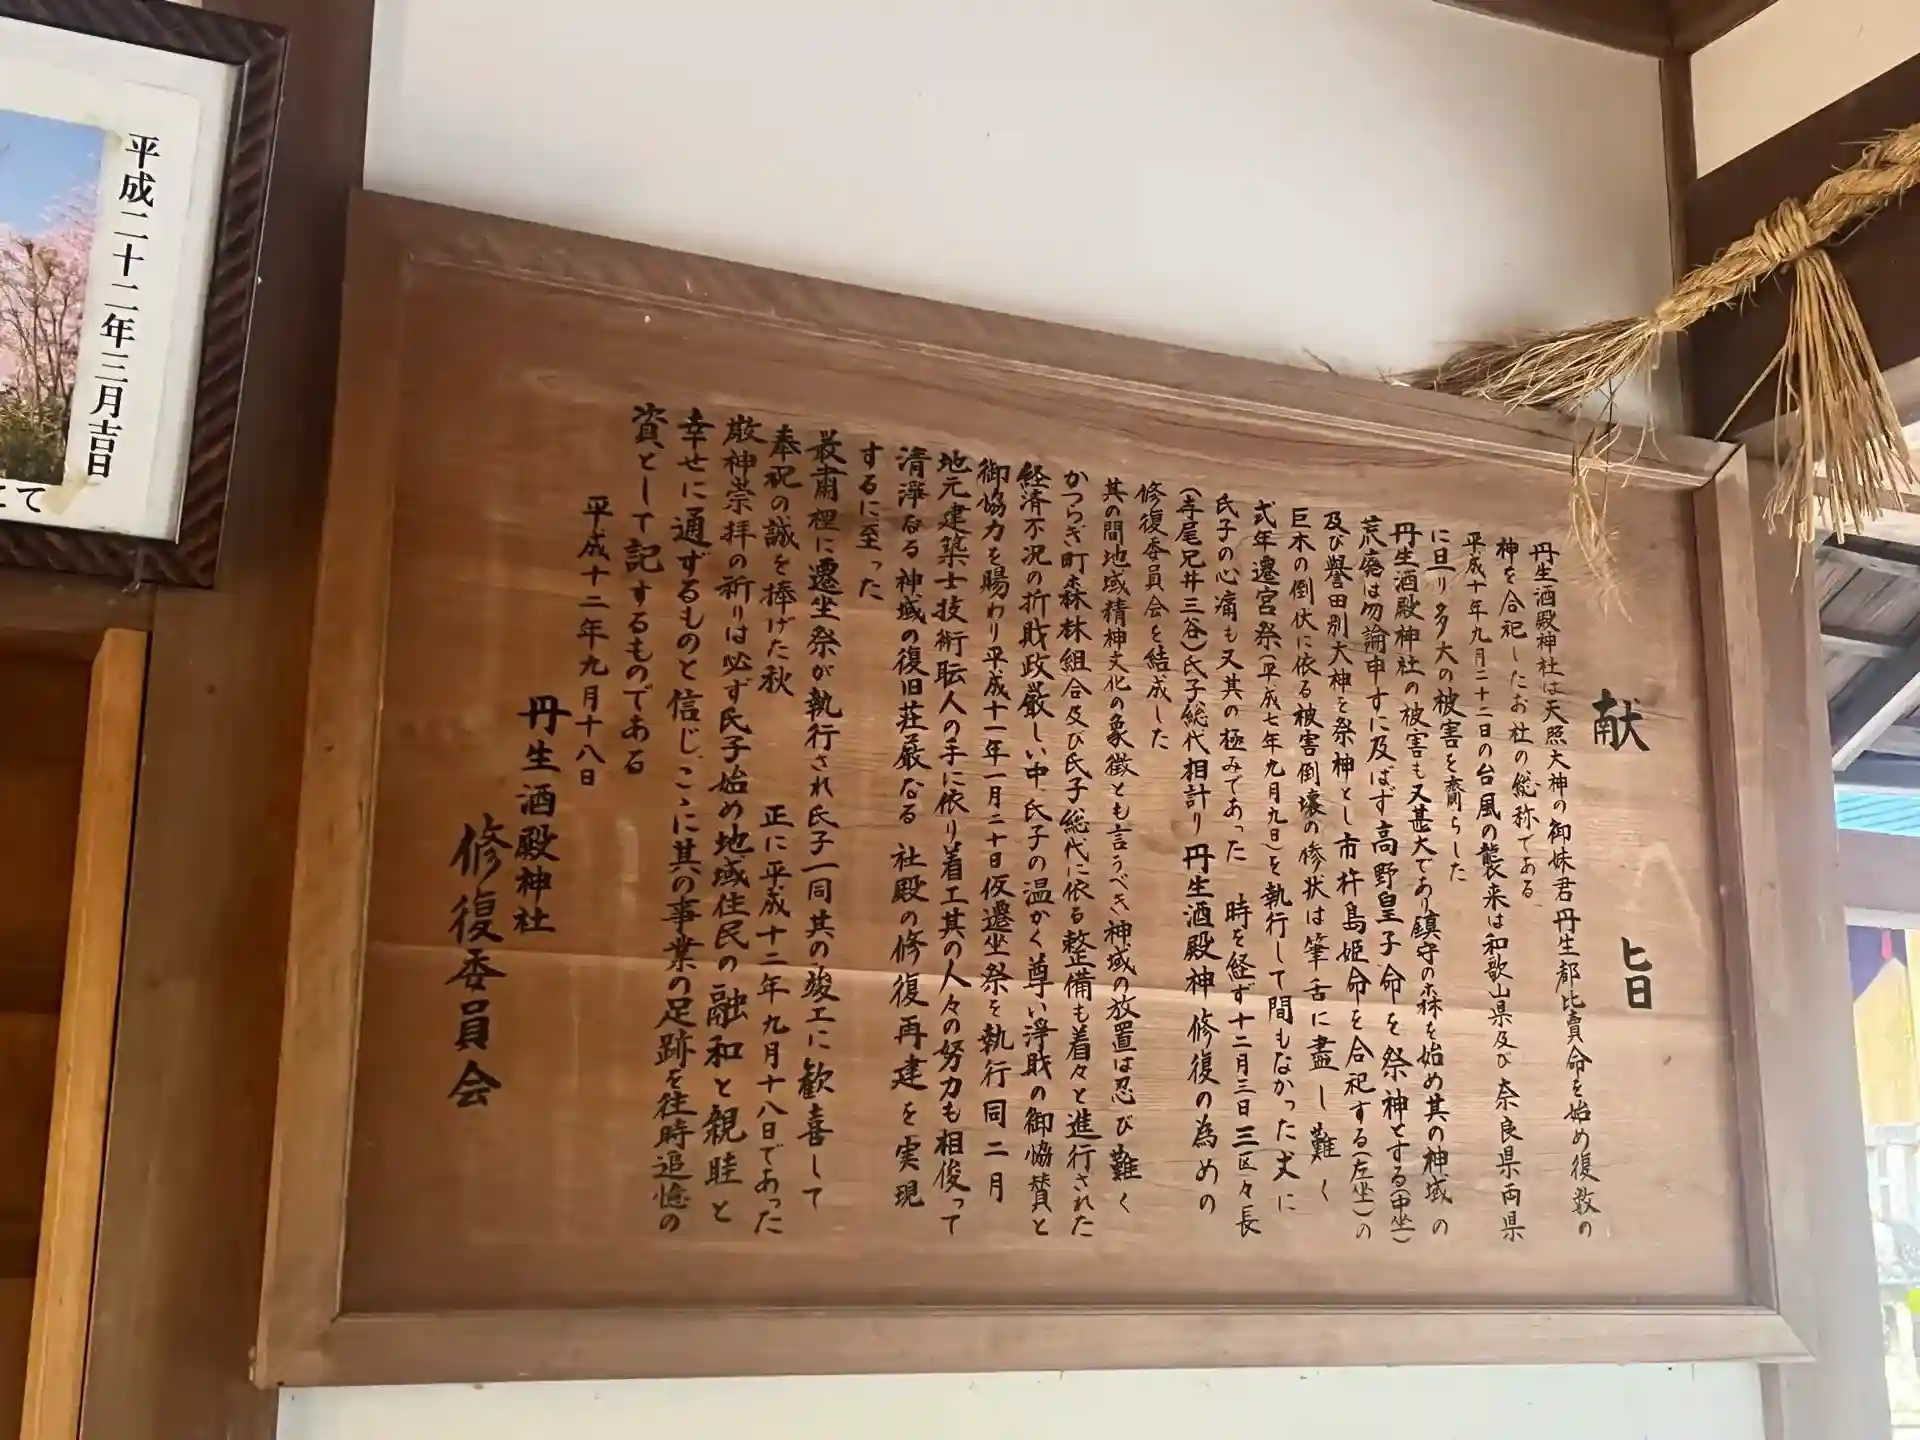 献旨
丹生酒殿神社は天照大神の御妹君丹生都比賣命を始め復数の
神を合祀したお社の総称である
平成十年九月二十二日の台風の襲来は和歌山県及び奈良県両県
に旦り多大の被害を齎らした
丹生酒殿神社の被害も又甚大であり鎮守の森を始め其の神域の
荒廃は勿論申すに及ばず高野皇子命を祭神とする(中坐)
及び誉田別大神を祭神とし市杵島姫命を合祀する(左坐)の
巨木の倒伏に依る被害倒壊の惨状は筆舌に盡し難く
式年遷宮祭(平成七年九月九日)を執行して間もなかった丈に
氏子の心痛も又其の極みであった 時を経ず十二月三日三区々長
(寺尾兄井三谷)氏子総代相計り丹生酒殿神社修復の為めの
修復委員会を結成した
其の間地域精神文化の象徴とも言うべき神域の放置は忍び難く
かつらぎ町森林組合及び氏子総代に依る整備も着々と進行された
経済不況の折財政厳しい中氏子の温かく尊い淨財の御協賛と
御協力を賜わり平成十一年一月二十日仮遷坐祭を執行同二月
地元建築士技術転人の手に依り着工其の人々の努力も相俊って
清淨なる神域の復旧荘厳なる 社殿の修復再建を実現
するに至った
最粛裡に遷坐祭が執行され氏子一同其の竣工に歓喜して
奉祝の誠を捧げた秋 正に平成十二年九月十八日であった
敬神崇拝の祈りは必ず氏子始め地域住民の融和と親睦と
幸せに通ずるものと信じここに其の事業の足跡を往時追憶の
資として記するものである
平成十二年九月十八日
丹生酒殿神社
修復委員会
平成二十二年三月吉日
にて